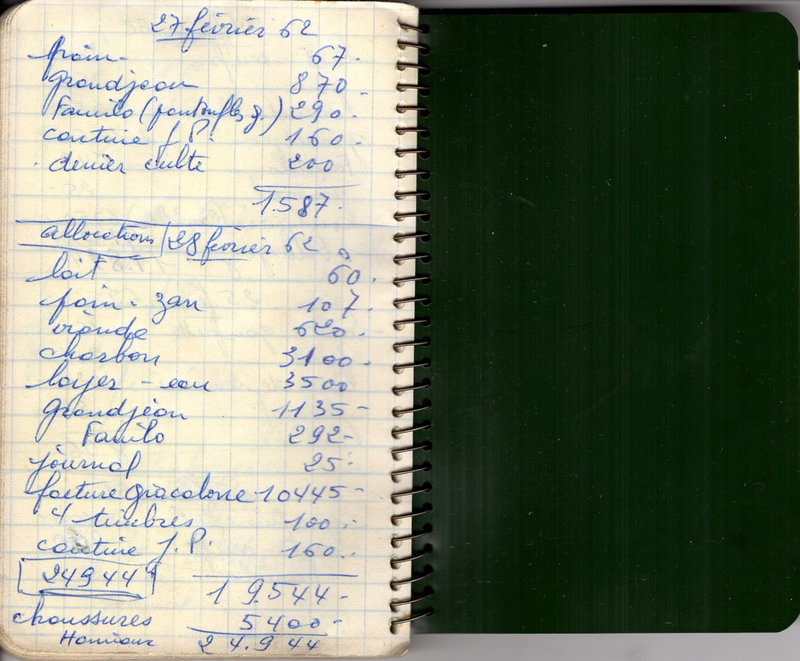 27 février 62
pain - 67.
grandjean 870 -
Familo (pantoufles g.) 290.
cantine J.P. 160.
denier culte 200
1587.
allocations 28 février 62
lait 60.
pain - zan 107.
viande 620.
charbon 3100.
loyer - eau 3500
grandjean 1135 -
Familo 292 -
journal 25.
facture giacalone 10445 -
4 timbres 100.
cantine J.P. 160.
24944
19544 -
chaussures 5400 -
24.944